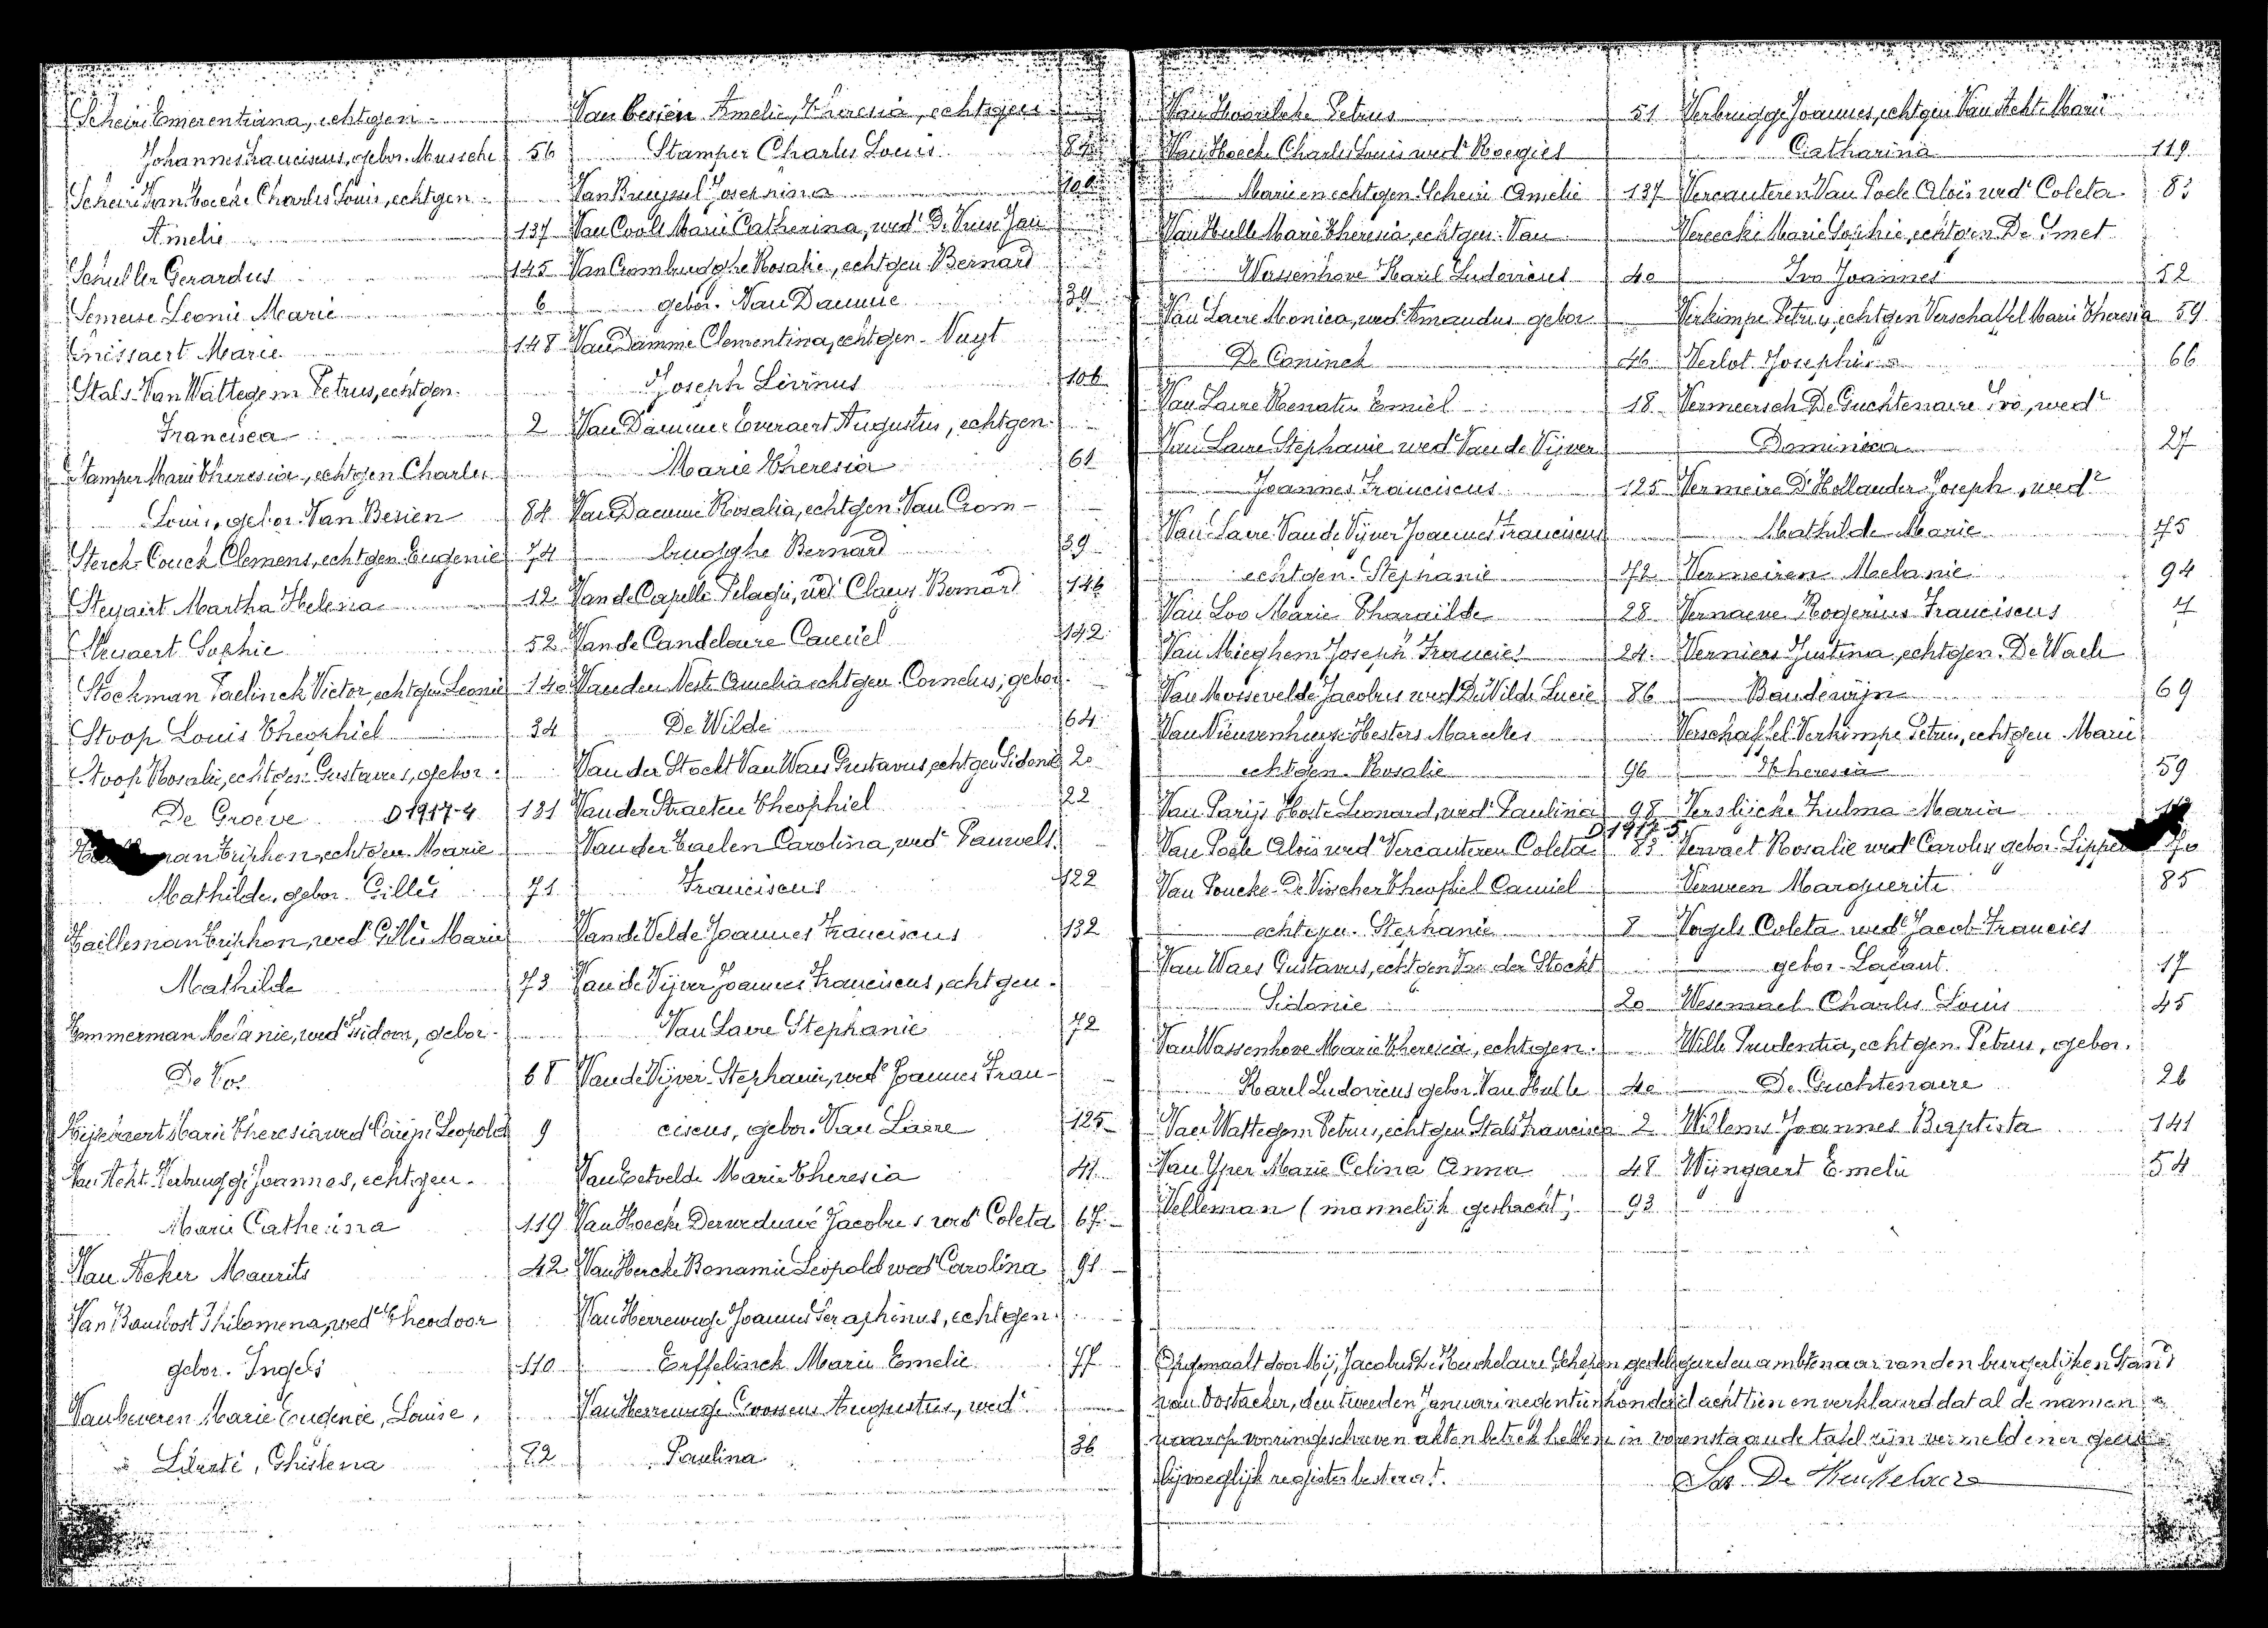 Scheire Emerentiana, echtgen.
Johannes Franciscus, gebor. Mussche 56
Scheire Van Hoecke Charles Louis, echtgen.
Amelie 137
Schuller Gerardus 145
Semeese Leonie Marie 6
Marie 148
Stals-Van Wattegem Petrus, echtgen.
Francisca 2
Stamper Marie Theresia, echtgen Charles
Louis, gebor. Van Besien 84
Sterck-Couck Clemens, echtgen. Eugenie 74
Steyaert Martha Helena 12
Steyaert Sophie 52
Stockman Paelinck Victor, echtgen Leonie 140
Stoop Louis Theophiel 34
Stoop Rosalie, echtgen. Gustavus, gebor.
De Groeve D 1917-4 131
Triphon, echtgen. Marie
Mathilde, gebor. Gilles 71
Taillieman Triphon, wed^r Gilles Marie
Mathilde 73
Temmerman Melanie, wed^e Isidoor, gebor.
De Vos 68
Marie Theresia wed Leopold 9
Van Acht-Verbrugge Joannes, echtgen.
Marie Catherina 119
Van Acker Maurits 42
Philomena, wed^e Theodoor
gebor. Ingels 110
Van beveren Marie Eugenie, Louise,
Ghislena 82
Van besien Amelie, Theresia, echtgen.
Stamper Charles Louis 84
Van Bruyssel Josephina
Van Cools Marie Catherina, wed^e De Jan
Van Crombrugghe Rosalie, echtgen. Bernard
gebor. Van Damme 39
Van Damme Clementina, echtgen. Nuyt
Joseph Livinus 106
Van Damme Everaert Augustus, echtgen.
Marie Theresia 61
Van Damme Rosalia, echtgen. Van Crom-
brugghe Bernard 39
Van de Capelle Pelagie, wed^e Claeys Bernard 146
Van de Candelaere Camiel 142
Van den Neste Amelia echtgen. Cornelus, gebor.
De Wilde 64
Van der Stockt Van Waes Gustavus, echtgen Sidonie 20
Van der Straeten Theophiel 22
Van der Taelen Carolina, wed^e Pauwels
Franciscus 122
Van de Velde Joannes Franciscus 132
Van de Vijver Joannes Franciscus, echtgen.
Van Laere Stephanie 72
Van de Vijver Stephanie, wed^e Joannes Fran-
ciscus, gebor. Van Laere 125
Van Eetvelde Marie Theresia 41
Van Hoecke Jacobus wed^r Coleta 67
Van Hecke Bonamie Leopold wed^r Carolina 91
Van Herrewege Joannes Seraphinus, echtgen.
Erffelinck Marie Emelie 77
Van Herrewege Goossens Augustus, wed^r
Paulina 36
Van Petrus 51
Van Hoecke Charles Louis wed^r Roegies
Marie en echtgen. Scheire Amelie 137
Van Hulle Marie Theresia, echtgen. Van
Wassenhove Karel Ludovicus 40
Van Laere Monica, wed^e Amandus gebor
De Coninck 46
Van Laere Renatus Emiel 18
Van Laere Stephanie wed^e Van de Vijver
Joannes Franciscus 125
Van Laere Van de Vijver Joannes Franciscus
echtgen. Stephanie 72
Van Loo Marie Pharailde 28
Van Mieghem Joseph Francies 24
Van Mossevelde Jacobus wed De Wilde Lucie 86
Van Nieuvenhuyse Hesters Marcelles
echtgen. Rosalie 96
Van Parijs Hoste Leonard, wed^r Paulina 98
D 1917-5
Van Poele Aloïs wed^r Vercauteren Coleta 83
Van Poucke-De Visscher Theophiel Camiel
echtgen. Stephanie 8
Van Waes Gustavus, echtgen Van der Stockt
Sidonie 20
Van Wassenhove Marie Theresia, echtgen.
Karel Ludovicus gebor. Van Hulle 40
Van Wattegem Petrus, echtgen Stals Francisca 2
Van Yper Marie Celina Anna 48
Velleman (mannelijk geslacht) 93
Verbrugge Joannes, echtgen Van Acht Marie
Catharina 119
Vercauteren Van Poele Aloïs wed^r Coleta 83
Vereecke Marie Sophie, echtgen De Smet
Ivo Joannes 52
Verkimpe Petrus, echtgen Verschaffel Marie Theresia 59
Verlot Josephina 66
Vermeersch De Guchtenaire Ivo, wed^r
Dominica 27
Vermeire D'Hollander Joseph, wed^r
Mathilde Marie 75
Vermeiren Melanie 94
Vernaeve Rogerius Franciscus 4
Verniers Justina, echtgen. De Wael
Baudewijn 69
Verschaffel Verkimpe Petrus, echtgen Marie
Theresia 59
Verslijcke Zulma Maria
Vervaet Rosalie wed^e Carolus gebor.
Verween Marguerite 85
Vogels Coleta wed^e Jacob Francies
gebor. Lacaut 17
Wesemael Charles Louis 45
Wille Prudentia, echtgen. Petrus, gebor.
De Guchtenaere 26
Willems Joannes Baptista 141
Wijngaert Emelie 54
Opgemaakt door Mij, Jacobus De Heuckelaere Schepen gedelegeerden ambtenaar van den burgerlijken Stand
van Oostacker, den tweeden Januari negentienhonderd achttien en verklaard dat al de namen
waarop vooringeschreven akten betrek hebben in bovenstaande tafel zijn vermeld en er geen
bijvoeglijk register bestaat.
Jac De Heukelaere